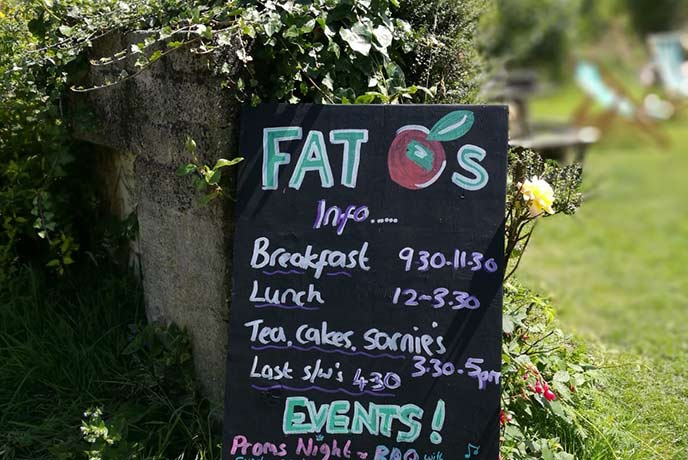 FAT A's
Info.....
Breakfast 9.30-11.30
Lunch 12-3.30
Tea, cakes, sarnie's 3.30-5pm
Last s/w's 4.30
EVENTS!
Proms Night - BBQ with